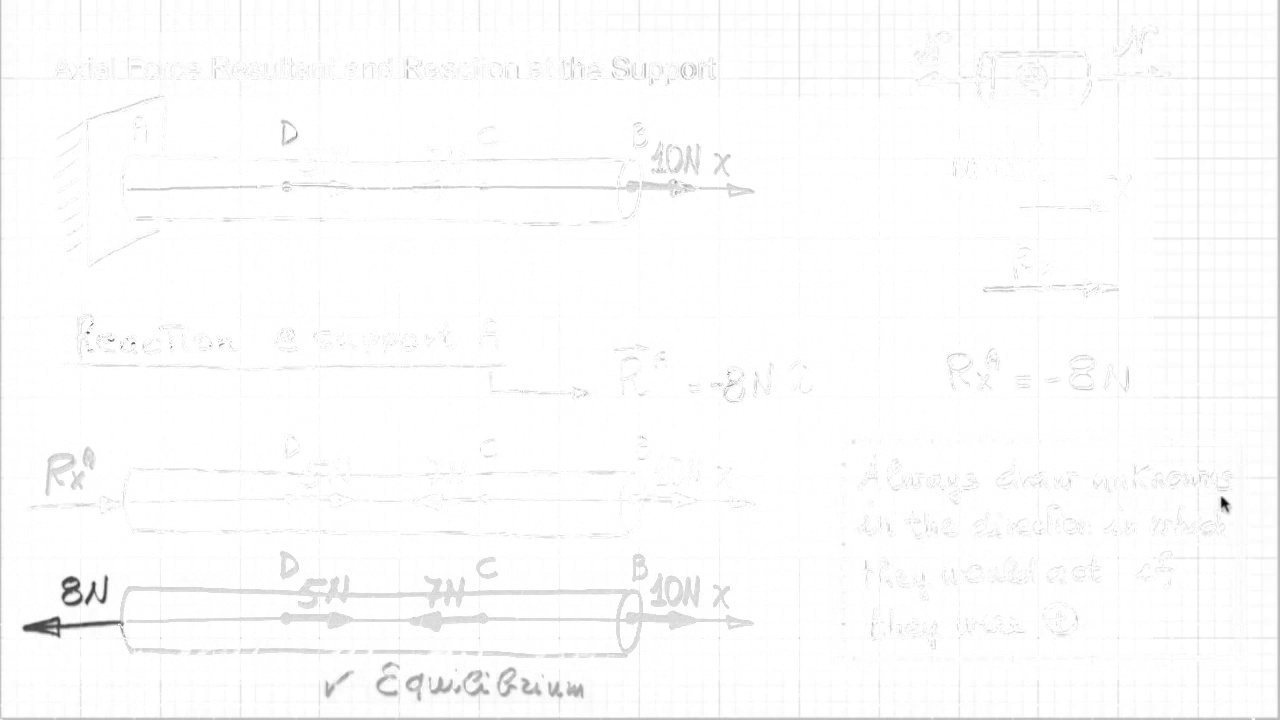 Axial Force Resultant and Reaction at the Support
N N
A D 5N 7N C B 10N x
Reaction @ support A
R^A = -8N î
Rx^A = -8N
Rx^A D 5N 7N C B 10N x
Always draw unknowns
in the direction in which
they would act if
they were ⊕
8N D 5N 7N C B 10N x
✓ Equilibrium